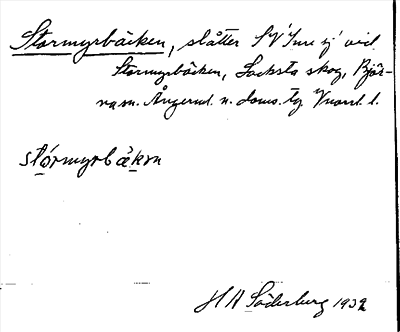 Stormyrbäcken, slåtter SV Inre sj vid
Stormyrbäcken, Locksta skog, Björ-
na sn. Ångerml. n. doms. tg Vnorrl. l.
stórmyrbäkɷn
H A Söderberg 1932